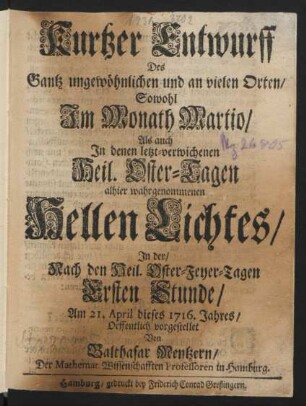 Kurtzer Entwurff
Des
Gantz ungewöhnlichen und an vielen Orten/
Sowohl
Im Monath Martio/
Als auch
In denen letzt-verwichenen
Heil. Oster-Tagen
alhier wahrgenommenen
Hellen Lichtes/
In der/
Nach den Heil. Oster-Feyer-Tagen
Ersten Stunde/
Am 21. April dieses 1716. Jahres/
Oeffentlich vorgestellet
Von
Balthasar Mentzern/
Der Mathemat. Wissenschafften Professoren in Hamburg.
Hamburg/ gedruckt bey Friderich Conrad Greflingern.